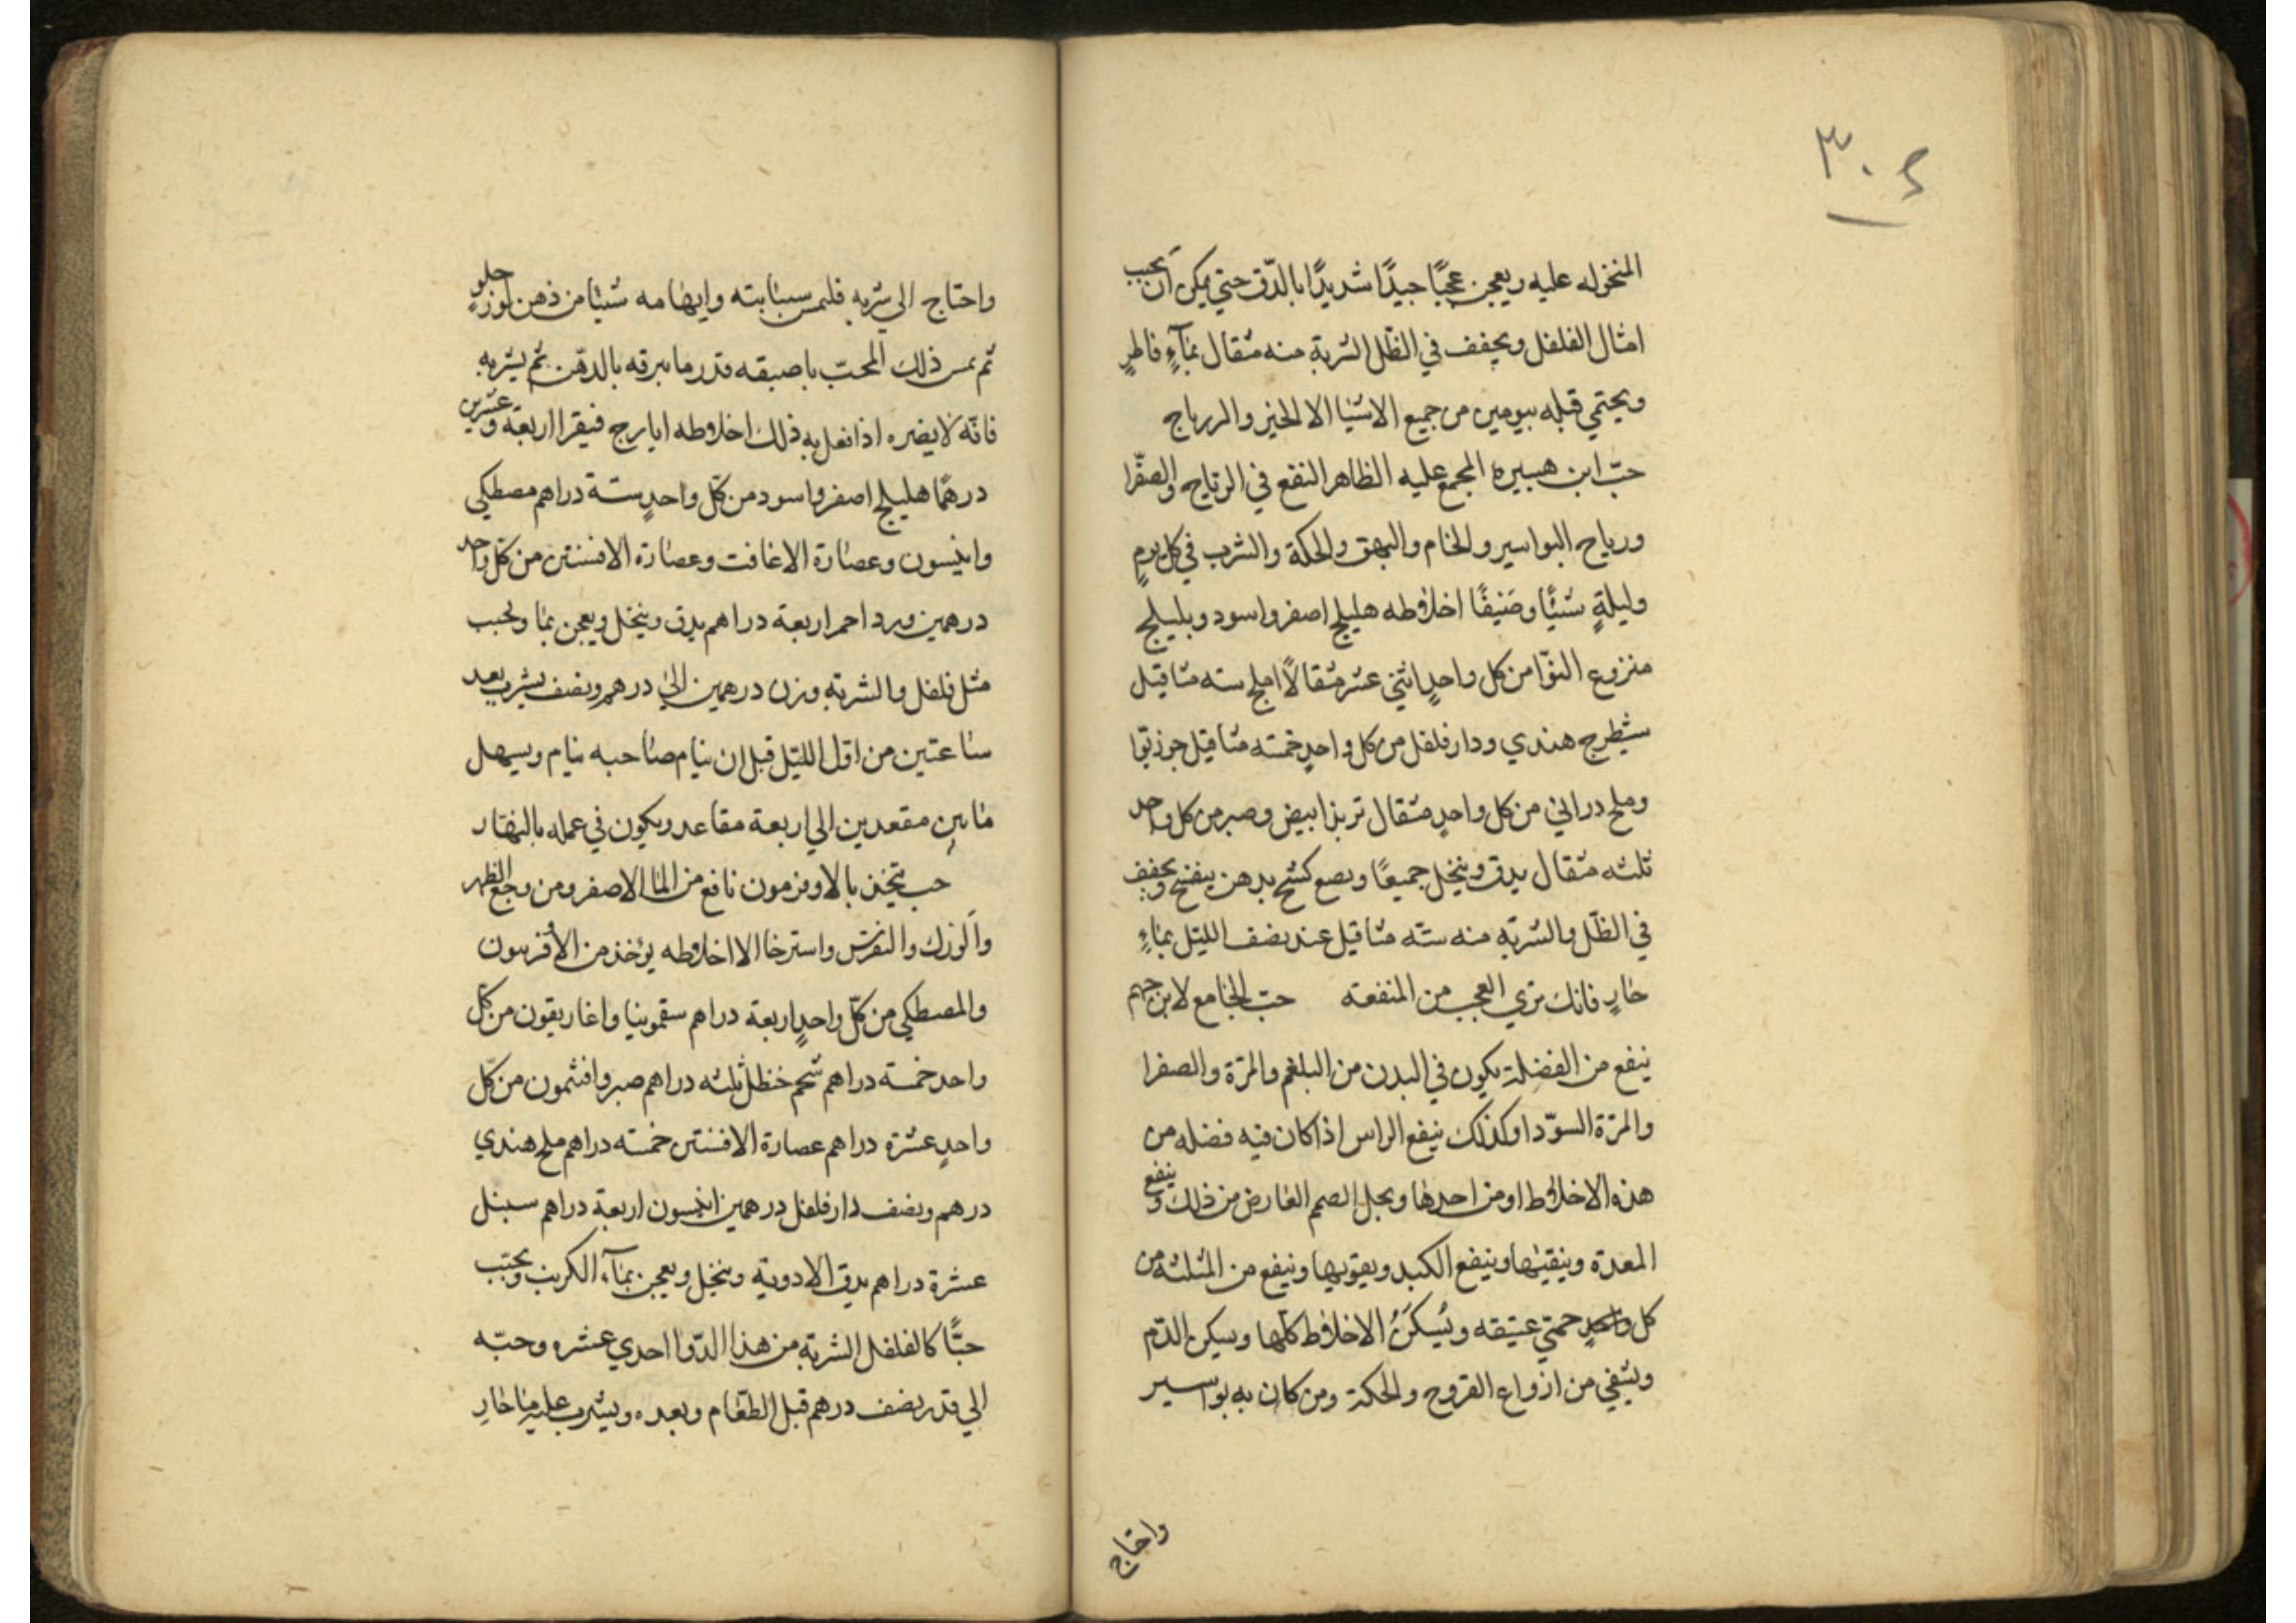 ٣٠٤
المنخوله عليه ويعجن عجنًا جيدًا شديدًا بالدّق حتي يمكن ان يحبب
امثال الفلفل ويجفف في الظّل الشربة منه مثقال بمآءٍ فاطرٍ
ويحتمي قبله بيومين من جميع الاشيا الا الخبز والزرباج
حبّ ابن هبيرة المجمع عليه الظاهر النفع في الرياح والصفّرا
ورياح البواسير والخام والبهق والحكة والشرب في كل يومٍ
وليلةٍ شتيًّا وصَيفًا اخلاطه هليلج اصفر واسود وبليلج
منزوع النوّا من كل واحدٍ اثني عشر مثقالًا املج سته مثاقيل
شيطرج هندي ودارفلفل من كل واحدٍ خمسه مثاقيل جوزبوّا
وملح دراني من كل واحدٍ مثقال تربد ابيض وصبر من كل واحد
ثلثه مثقال يدق وينخل جميعًا بدهن بنفسج ويجفف
في الظّل والشربة منه ستّه مثاقيل عند نصف الليّل بماءٍ
حارٍ فانك تري العجب من المنفعة حبّ الجامع لابن جهم
ينفع من الفضلة يكون في البدن من البلغم والمرّة والصفرا
والمرّة السوّدا وكذلك ينفع الراس اذا كان فيه فضله من
هذه الاخلاط او من احدها ويحل الصمم العارض من ذلك وينفع
المعدة وينقيها وينفع الكبد ويقويها وينفع من المثلثه من
كل واحدٍ حمتي عتيقه ويُسكّنُ الاخلاط كلها ويسكن الدّم
ويشفي من ازواع القروح والحكة ومن كان به بواسير
واحتاج
واحتاج الي شربه فليمس سبّابته وابهامه شيًا من ذهن لوز حلوٍ
ثم يمس ذلك المحبّ باصبعه قدر ما يبرقه بالدهّن ثم يشربه
فانّه لا يضره اذا نعل به ذلك اخلاطه ايارج فيقرا اربعة وعشرين
درهمًا هليلج اصفر واسود من كلّ واحدٍ ستة دراهم مصطكي
وانيسون وعصارة الاغافت وعصارة الافسنتين من كل واحد
درهمين ورد احمر اربعة دراهم يدق وينخل ويعجن بما ويحبب
مثل فلفل والشربة وزن درهمين الي درهم ونصف يشرب بعد
ساعتين من اوّل الليّل قبل ان ينام صاحبه ينام ويسهل
مابين مقعدين الي اربعة مقاعد ويكون في عمله بالنهّار
حب يتخذ بالاوفرمون نافع من الما الاصفر ومن وجع الظهر
والوَرك والنقرس واسترخا الا اخلاطه يؤخذ من الأفربيون
والمصطكي من كلّ واحدٍ اربعة دراهم سقمونيا واغاريقون من كلّ
واحد خمسة دراهم شحم خنظل ثلثه دراهم صبر وافثمون من كلّ
واحدٍ عشرة دراهم عصارة الافسنتين خمسته دراهم ملح هندي
درهم ونصف دارفلفل درهمين انيسون اربعة دراهم سنبل
عشرة دراهم يدق الادوية وينخل ويعجن بمآء الكرنب ويحبّب
حبًّا كالفلفل الشربة من هذا الدّوا احدي عشره وحبّه
الي قدر نصف درهم قبل الطعّام وبعده ويشرب عليه ما حارِ